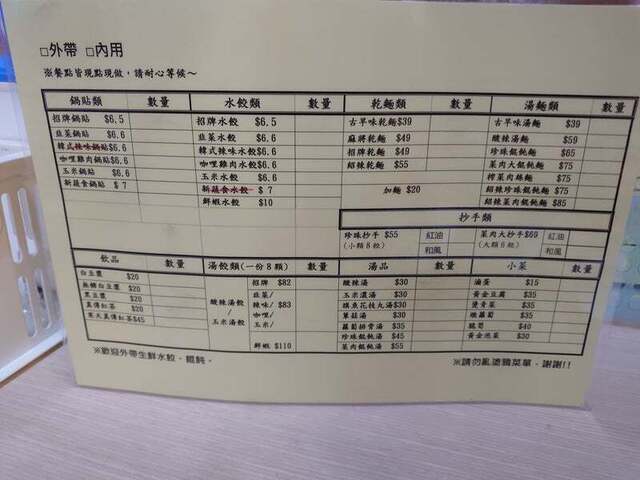 □外帶 □內用
※餐點皆現點現做，請耐心等候～
鍋貼類 數量 水餃類 數量 乾麵類 數量 湯麵類 數量
招牌鍋貼 $6.5 招牌水餃 $6.5 古早味乾麵$39 古早味湯麵 $39
韭菜鍋貼 $6.6 韭菜水餃 $6.6 麻將乾麵 $49 酸辣湯麵 $59
韓式辣味鍋貼$6.6 韓式辣味水餃$6.6 招牌乾麵 $49 珍珠餛飩麵 $65
咖哩雞肉鍋貼$6.6 咖哩雞肉水餃$6.6 紹辣乾麵 $55 菜肉大餛飩麵 $75
玉米鍋貼 $6.6 玉米水餃 $6.6 榨菜肉絲麵 $75
新蔬食鍋貼 $7 新蔬食水餃 $7 加麵 $20 紹辣珍珠餛飩麵 $80
鮮蝦水餃 $10 紹辣菜肉餛飩麵 $85
抄手類
珍珠抄手 $55 紅油 菜肉大抄手$60 紅油
(小顆8粒) 和風 (大顆6粒) 和風
飲品 數量 湯餃類(一份8顆) 數量 湯品 數量 小菜 數量
白豆漿 $20
無糖白豆漿 $20
黑豆漿 $20
英傳紅茶 $20
$45
酸辣湯餃
/
玉米湯餃
招牌 $82
韭菜/
辣味/ $83
咖哩/
玉米/
鮮蝦 $110
酸辣湯 $30
玉米濃湯 $30
旗魚花枝丸湯$30
$30
蘿蔔排骨湯 $35
珍珠餛飩湯 $45
菜肉餛飩湯 $55
滷蛋 $15
黃金豆腐 $35
$35
辣蘿蔔 $35
脆筍 $40
黃金泡菜 $30
※歡迎外帶生鮮水餃、餛飩。
※請勿亂塗鴉菜單、謝謝!!